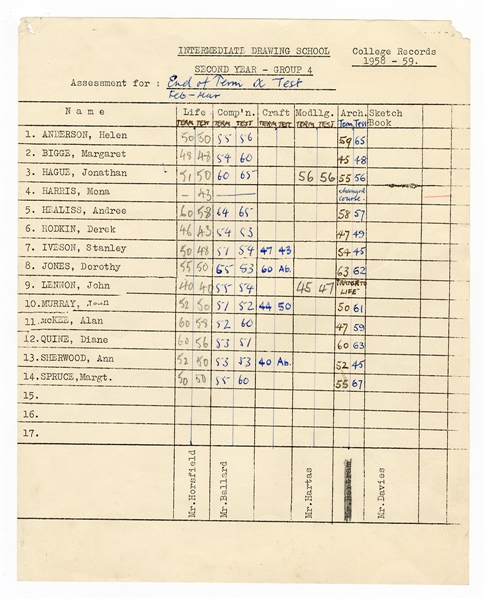 INTERMEDIATE DRAWING SCHOOL College Records
SECOND YEAR - GROUP 4 1958 - 59.
Assessment for : End of Term & Test
Feb-Mar
Name Life Comp'n. Craft Modllg. Arch. Sketch Book
TERM TEST TERM TEST TERM TEST TERM TEST Term Test
1. ANDERSON, Helen 50 50 55 56 59 65
2. BIGGE, Margaret 48 48 54 60 45 48
3. HAGUE, Jonathan 51 50 60 65 56 56 55 56
4. HARRIS, Mona - 43 changed course.
5. HEALISS, Andree 60 58 64 65 58 57
6. HODKIN, Derek 46 43 54 53 47 49
7. IVESON, Stanley 50 48 51 54 47 43 54 45
8. JONES, Dorothy 55 50 65 53 60 Ab. 63 62
9. LENNON, John 40 40 55 54 45 47 LIFE
10. MURRAY, 52 50 51 52 44 50 50 61
11. McKEE, Alan 60 58 52 60 47 59
12. QUINE, Diane 60 56 53 51 60 63
13. SHERWOOD, Ann 52 50 53 53 40 Ab. 52 45
14. SPRUCE, Margt. 50 50 55 60 55 67
15.
16.
17.
Mr. Horsfield
Mr. Ballard
Mr. Hartas
Mr. Davies